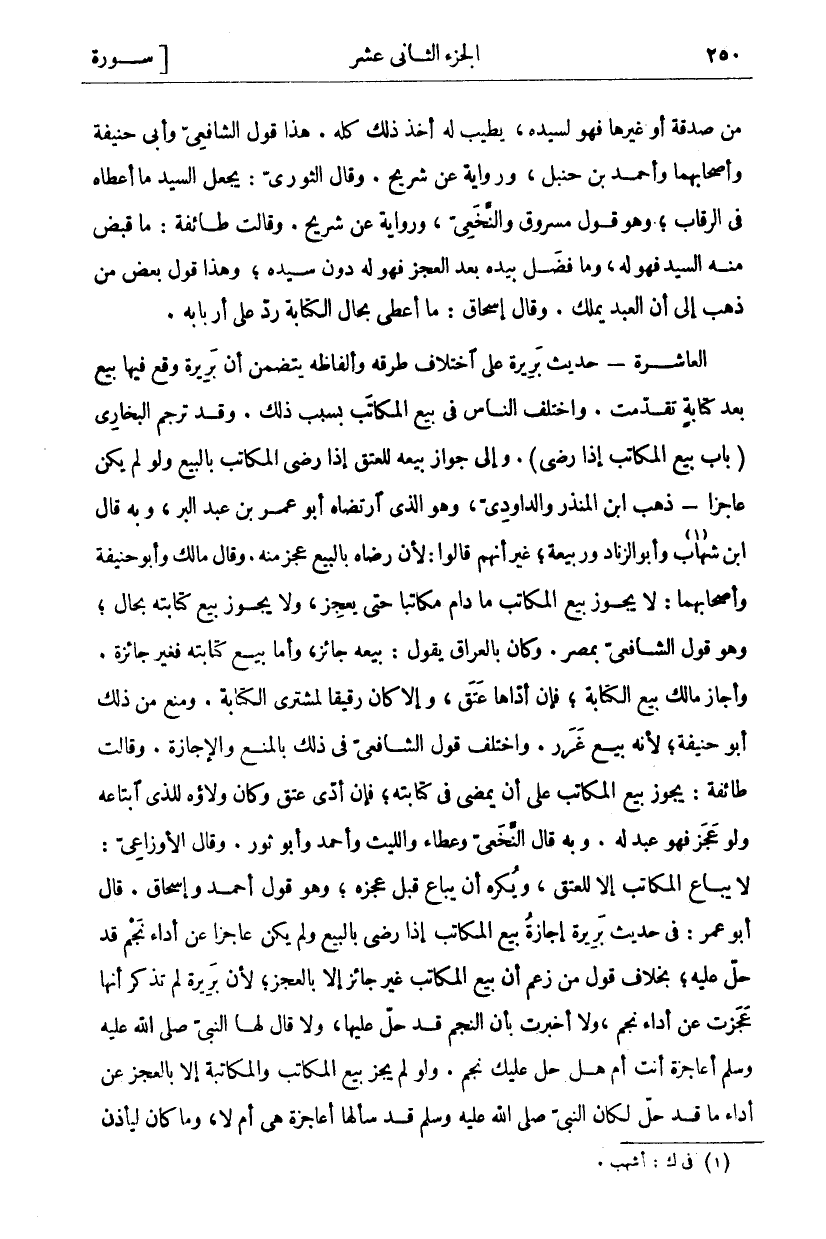 ٢٥٠ الجزء الثانى عشر [ ســورة
من صدقة أو غيرها فهو لسيده، يطيب له أخذ ذلك كله . هذا قول الشافعىّ وأبى حنيفة
وأصحابهما وأحمــد بن حنبل ، ورواية عن شريح . وقال الثورىّ : يجعل السيد ما أعطاه
فى الرقاب ؛ وهو قــول مسروق والنَّخَعِىّ ، ورواية عن شريح . وقالت طــائفة : ما قبض
منــه السيد فهو له، وما فضَــل بيده بعد العجز فهو له دون ســيده ؛ وهذا قول بعض من
ذهب إلى أن العبد يملك . وقال إسحاق : ما أعطى بحال الكتابة ردّ على أربابه .
العاشــرة — حديث بَرِيرة على ٱختلاف طرقه وألفاظه يتضمن أن بَرِيرة وقع فيها بيع
بعد كتابةٍ تقــدّمت . واختلف النــاس فى بيع المكاتَب بسبب ذلك . وقــد ترجم البخارى
( باب بيع المكاتب إذا رضى) . وإلى جواز بيعه للعتق إذا رضى المكاتب بالبيع ولو لم يكن
عاجزا — ذهب ابن المنذر والداودِىّ، وهو الذى ٱرتضاه أبو عمــر بن عبد البر ، و به قال
ابن شهاب (١) وأبو الزناد وربيعة؛ غير أنهم قالوا: لأن رضاه بالبيع عجز منه . وقال مالك وأبو حنيفة
وأصحابهما : لا يجــوز بيع المكاتب ما دام مكاتبا حتى يعجِز ، ولا يجــوز بيع كتابته بحال ؛
وهو قول الشــافعىّ بمصر . وكان بالعراق يقول : بيعه جائز، وأما بيــع كتابته فغير جائزة .
وأجاز مالك بيع الكتابة ؛ فإن أدّاها عَتَق ، و إلا كان رقيقا لمشترى الكتابة . ومنع من ذلك
أبو حنيفة؛ لأنه بيــع غَرَر . واختلف قول الشــافعىّ فى ذلك بالمنــع والإجازة . وقالت
طائفة : يجوز بيع المكاتب على أن يمضى فى كتابته؛ فإن أدّى عتق وكان ولاؤه للذى ٱبتاعه
ولو عَجَز فهو عبد له . و به قال النَّخَعىّ وعطاء والليث وأحمد وأبو ثور . وقال الأوزاعِىّ :
لا يبــاع المكاتب إلا للعتق ، ويُكره أن يباع قبل عجزه ؛ وهو قول أحمــد و إسحاق . قال
أبو عمر : فى حديث بَرِيرة إجازةُ بيع المكاتب إذا رضى بالبيع ولم يكن عاجزا عن أداء نَجْم قد
حلّ عليه؛ بخلاف قول من زعم أن بيع المكاتب غير جائز إلا بالعجز؛ لأن بَرِيرة لم تذكر أنها
عَجَزت عن أداء نجم ،ولا أخبرت بأن النجم قــد حلّ عليها، ولا قال لهــا النبىّ صلى الله عليه
وسلم أعاجزة أنت أم هــل حل عليك نجم . ولو لم يجز بيع المكاتب والمكاتبة إلا بالعجز عن
أداء ما قــد حلّ لــكان النبىّ صلى الله عليه وسلم قــد سألها أعاجزة هى أم لا، وما كان ليأذن
(١) فى ك : أشهب .